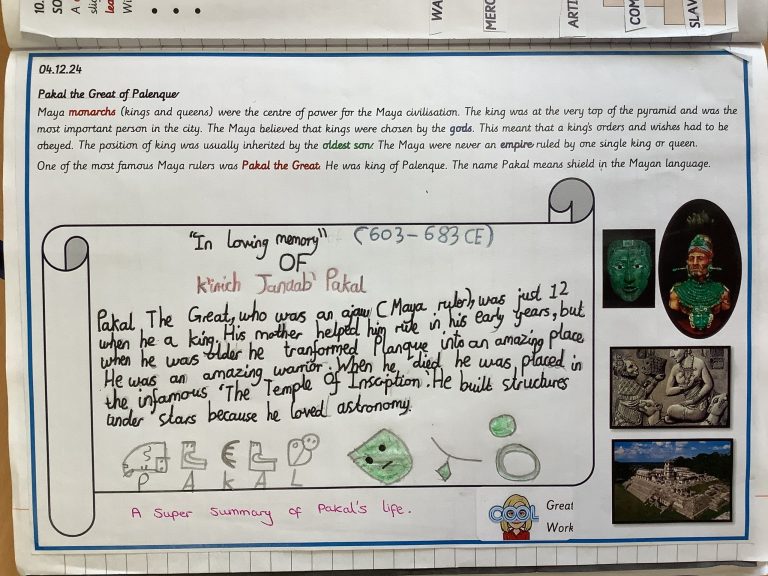 10.
SO
A
sli
lea
Wi
WA
MERC
ARTI
COM
SLAV
04.12.24
Pakal the Great of Palenque
Maya monarchs (kings and queens) were the centre of power for the Maya civilisation. The king was at the very top of the pyramid and was the
most important person in the city. The Maya believed that kings were chosen by the gods. This meant that a king's orders and wishes had to be
obeyed. The position of king was usually inherited by the oldest son. The Maya were never an empire ruled by one single king or queen.
One of the most famous Maya rulers was Pakal the Great. He was king of Palenque. The name Pakal means shield in the Mayan language.
"In loving memory" (603-683 CE)
OF
K'inich Janaab' Pakal
Pakal The Great, who was an ajaw (Maya ruler), was just 12
when he a king. His mother helped him rule in his early years, but
when he was older he tranformed Planque into an amazing place.
He was an amazing warrior. When he died he was placed in
the infamous 'The Temple Of Inscription. He built structures
under stars because he loved astronomy.
P A K A L
A super summary of Pakal's life.
COOL
Great
Work